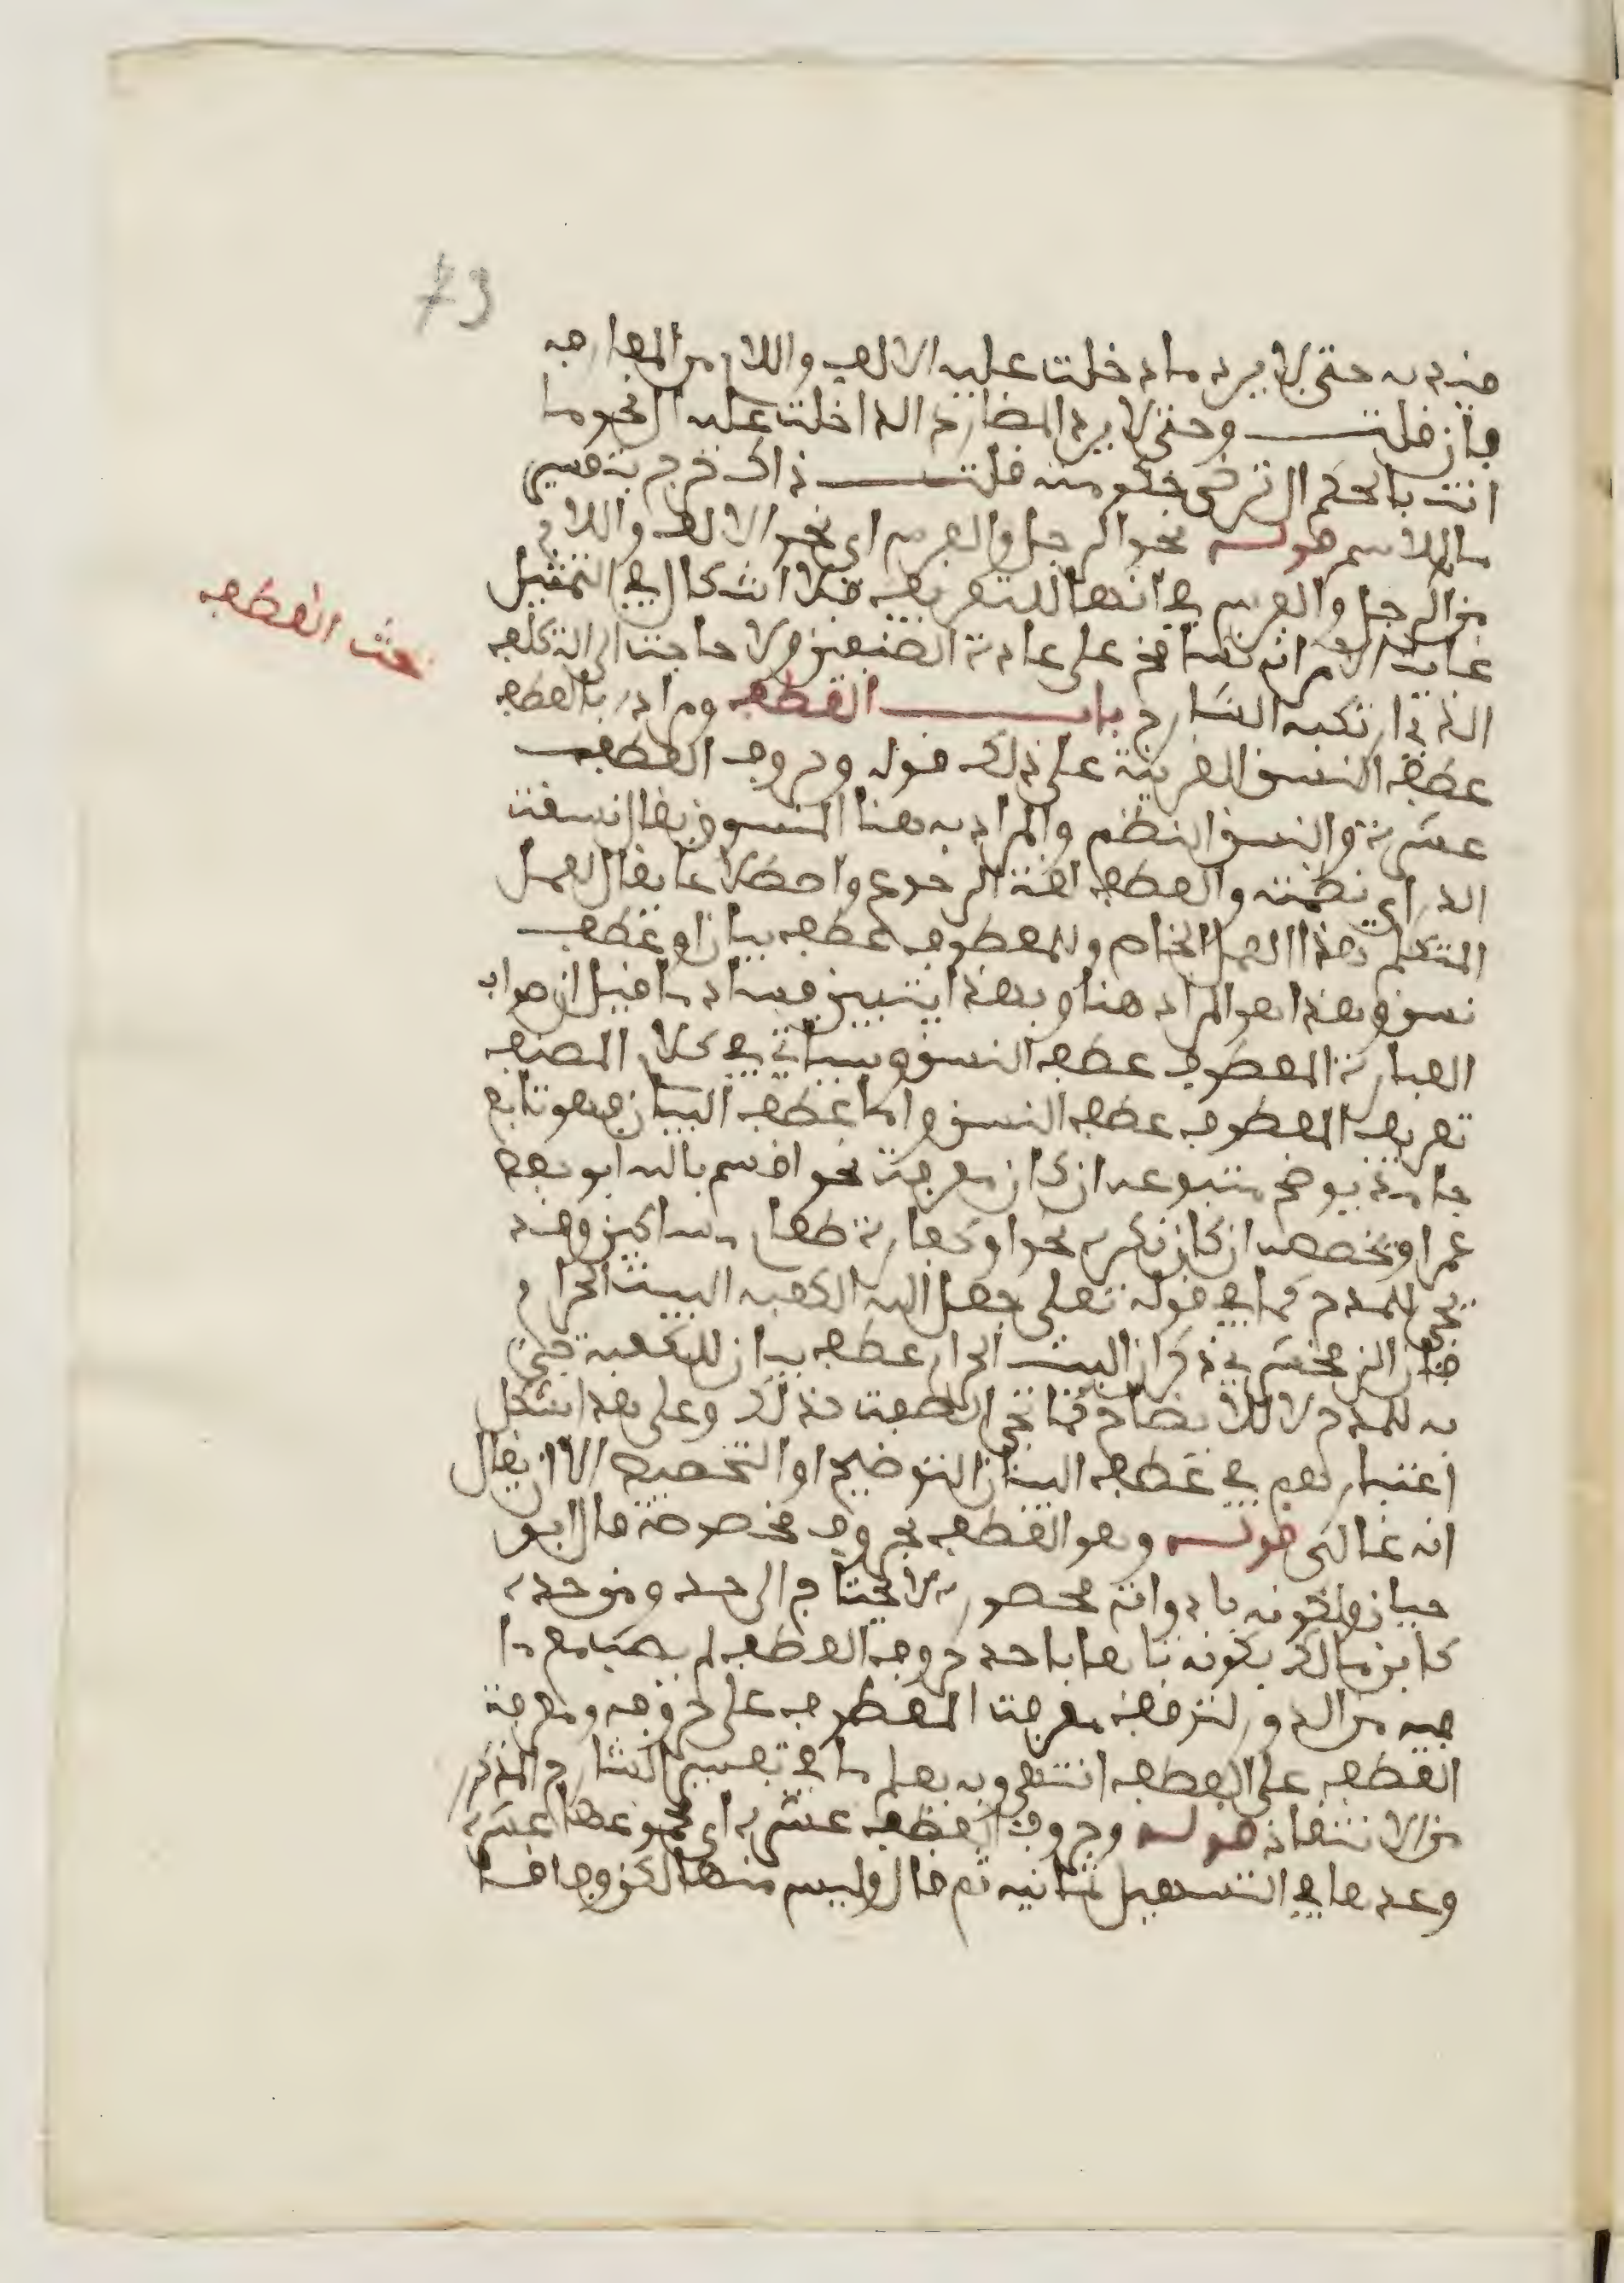 73
قيد به حتى لا يرد ما دخلت عليه الالف واللام من المعارف
فان قلت وحتى لا يرد المضارع الداخلة عليه ال نحو ما
انت بالحكم الترضى حكومته قلت ذاك خرج بتفسير
ما بالاسم قوله نحو الرجل والفرس اي نحو الالف واللام
من الرجل والفرس في انهما للتعريف فلا اشكال في التمثيل
غاية الامر انه تسامح على عادة المصنفين ولا حاجة الى التكلف
الذي ارتكبه الشارح باب العطف ومراده بالعطف
بحث العطف
عطف النسق القرينة على ذلك قوله وحروف العطف
عشرة والنسق النظم والمراد به هنا المنسوق يقال نسقت
الدر اي نظمته والعطف لغة الرجوع واصطلاحا يقال لفعل
المتكلم هذا الفعل الخاص وللمعطوف عطف بيان او عطف
نسق وهذا هو المراد هنا وبهذا يتبين فساد ما قيل ان صواب
العبارة المعطوف عطف النسق وسياتي في كلام المصنف
تعريف المعطوف عطف النسق واما عطف البيان فهو تابع
جامد يوضح متبوعه ان كان معرفة نحو اقسم بالله ابو حفص
عمر او يخصصه ان كان نكرة نحو او كفارة طعام مساكين وقد
يجئ للمدح كما في قوله تعلى جعل الله الكعبة البيت الحرام
قال الزمخشري ذكر ان البيت الحرام عطف بيان للكعبة جئ
به للمدح لا للايضاح كما تجئ الصفة كذلك وعلى هذا اشكل
اعتبارهم في عطف البيان التوضيح او التخصيص الا ان يقال
انه غالبى قوله وهو العطف بحروف مخصوصة قال ابو
حيان ولكونه بادوات محصورة لا يحتاج الى حد ومن حده
كابن مالك بكونه تابعا باحد حروف العطف لم يصب مع ما
فيه من الدور لتوقف معرفة المعطوف على حروفه ومعرفة
العطف على العطف انتهى وبه يعلم ما في تفسير الشارح المذكور
من الانتقاد قوله وحروف العطف عشرة اي مجموعها عشرة
وعدها في التسهيل ثمانية ثم قال وليس منها لكن وفاقا